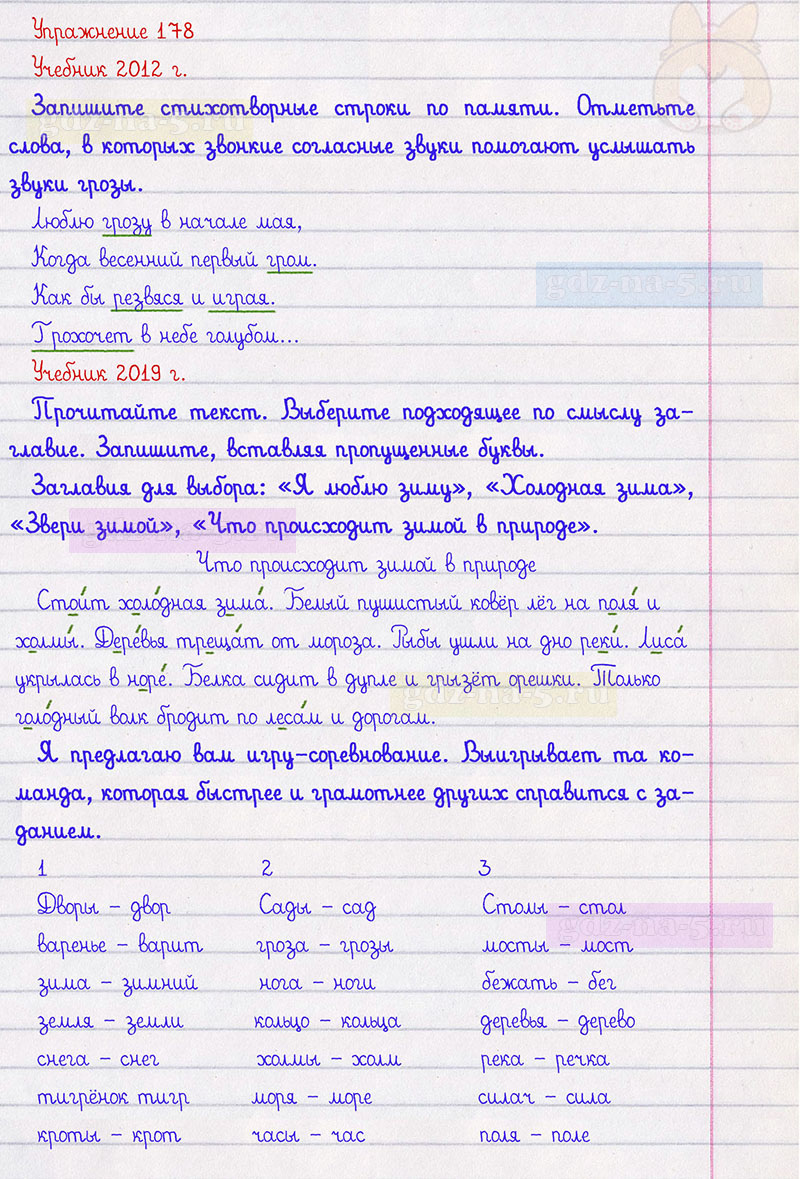 Упражнение 178
Учебник 2012 г.
Запишите стихотворные строки по памяти. Отметьте
слова, в которых звонкие согласные звуки помогают услышать
звуки грозы.
Люблю грозу в начале мая,
Когда весенний первый гром.
Как бы резвяся и играя.
Грохочет в небе голубом...
gdz-na-5.ru
Учебник 2019 г.
Прочитайте текст. Выберите подходящее по смыслу за-
главие. Запишите, вставляя пропущенные буквы.
Заглавия для выбора: «Я люблю зиму», «Холодная зима»,
«Звери зимой», «Что происходит зимой в природе».
Что происходит зимой в природе
Стои́т холо́дная зима́. Белый пушистый ковёр лёг на поля́ и
холмы́. Дере́вья треща́т от мороза. Рыбы ушли на дно реки́. Лиса́
укрылась в норе́. Белка сидит в дупле и грызёт орешки. Только
голо́дный волк бродит по леса́м и дорогам.
gdz-na-5.ru
Я предлагаю вам игру-соревнование. Выигрывает та ко-
манда, которая быстрее и грамотнее других справится с за-
данием.
1 2 3
Дворы – двор Сады – сад Столы – стол
варенье – варит гроза – грозы мосты – мост
зима – зимний нога – ноги бежать – бег
земля – земли кольцо – кольца деревья – дерево
снега – снег холмы – холм река – речка
тигрёнок тигр моря – море силач – сила
кроты – крот часы – час поля – поле
gdz-na-5.ru